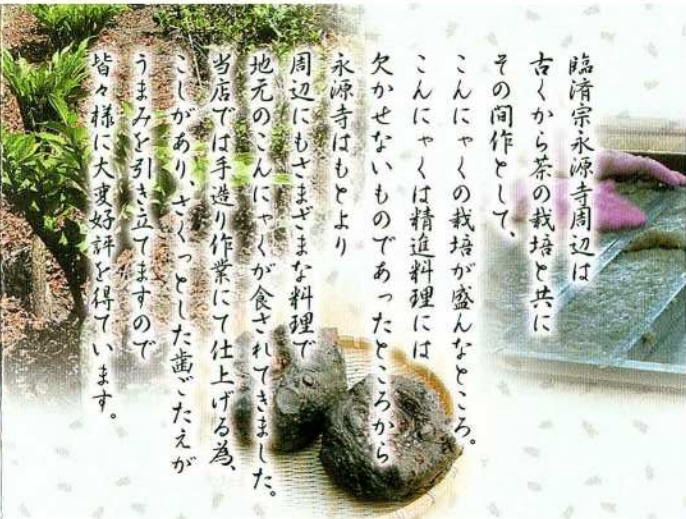 臨済宗永源寺周辺は
古くから茶の栽培と共に
その間作として、
こんにゃくの栽培が盛んなところ。
こんにゃくは精進料理には
欠かせないものであったところから
永源寺はもとより
周辺にもさまざまな料理で
地元のこんにゃくが食されてきました。
当店では手造り作業にて仕上げる為、
こしがあり、さくっとした歯ごたえが
うまみを引き立てますので
皆々様に大変好評を得ています。